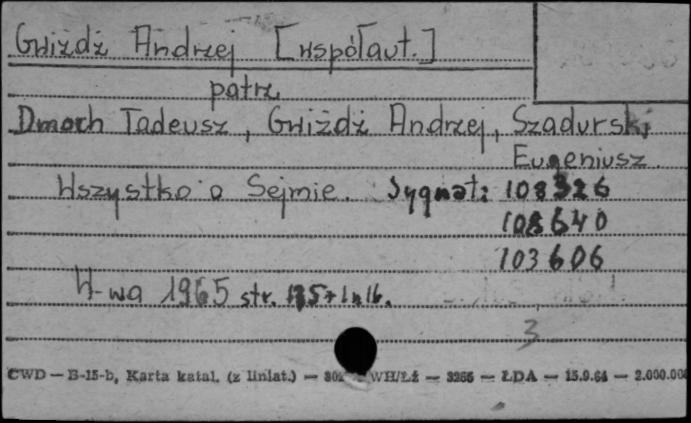 Gwiżdż Andrzej [współaut.]
patrz
Dmoch Tadeusz, Gwiżdż Andrzej, Szadurski
Eugeniusz.
Wszystko o Sejmie. Sygnat: 108326
108640
103606
W-wa 1965 str.
3
CWD — B-15-b, Karta katal. (z liniat.) — WH/Łż — 3266 — ŁDA — 15.9.64 — 2.000.000